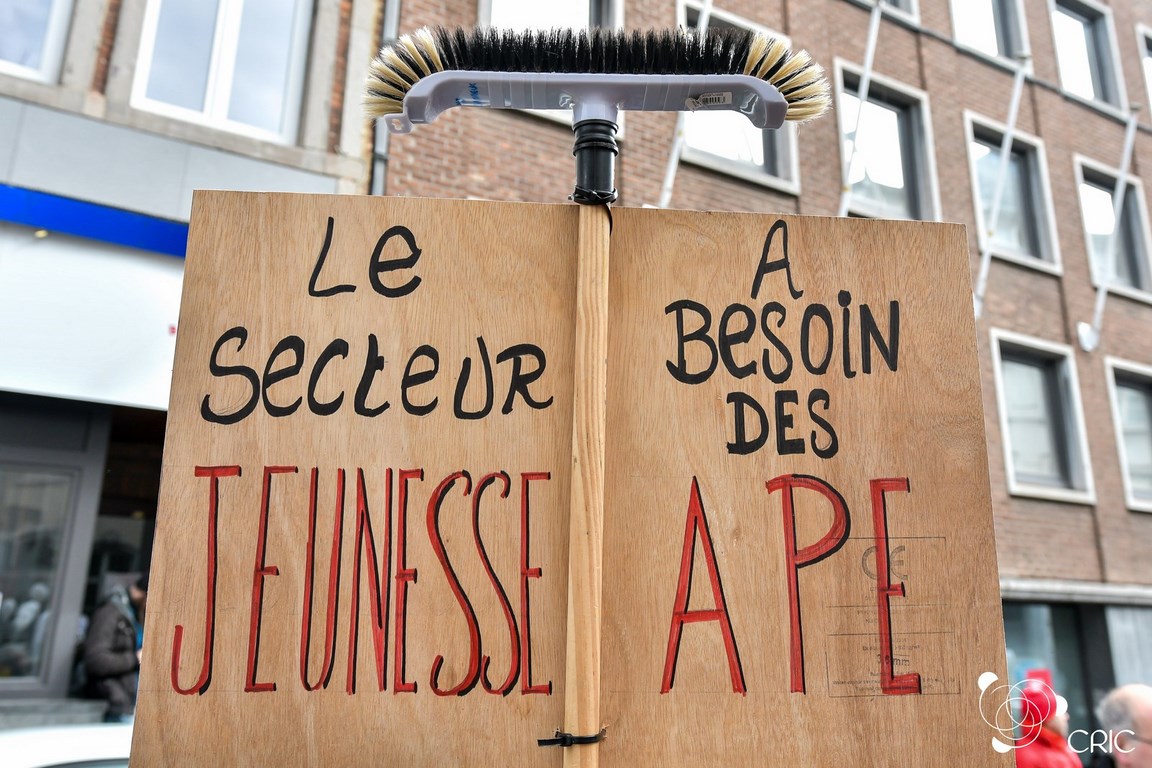 Le
Secteur
JEUNESSE
A
BESOIN
DES
APE
CE
CRIC